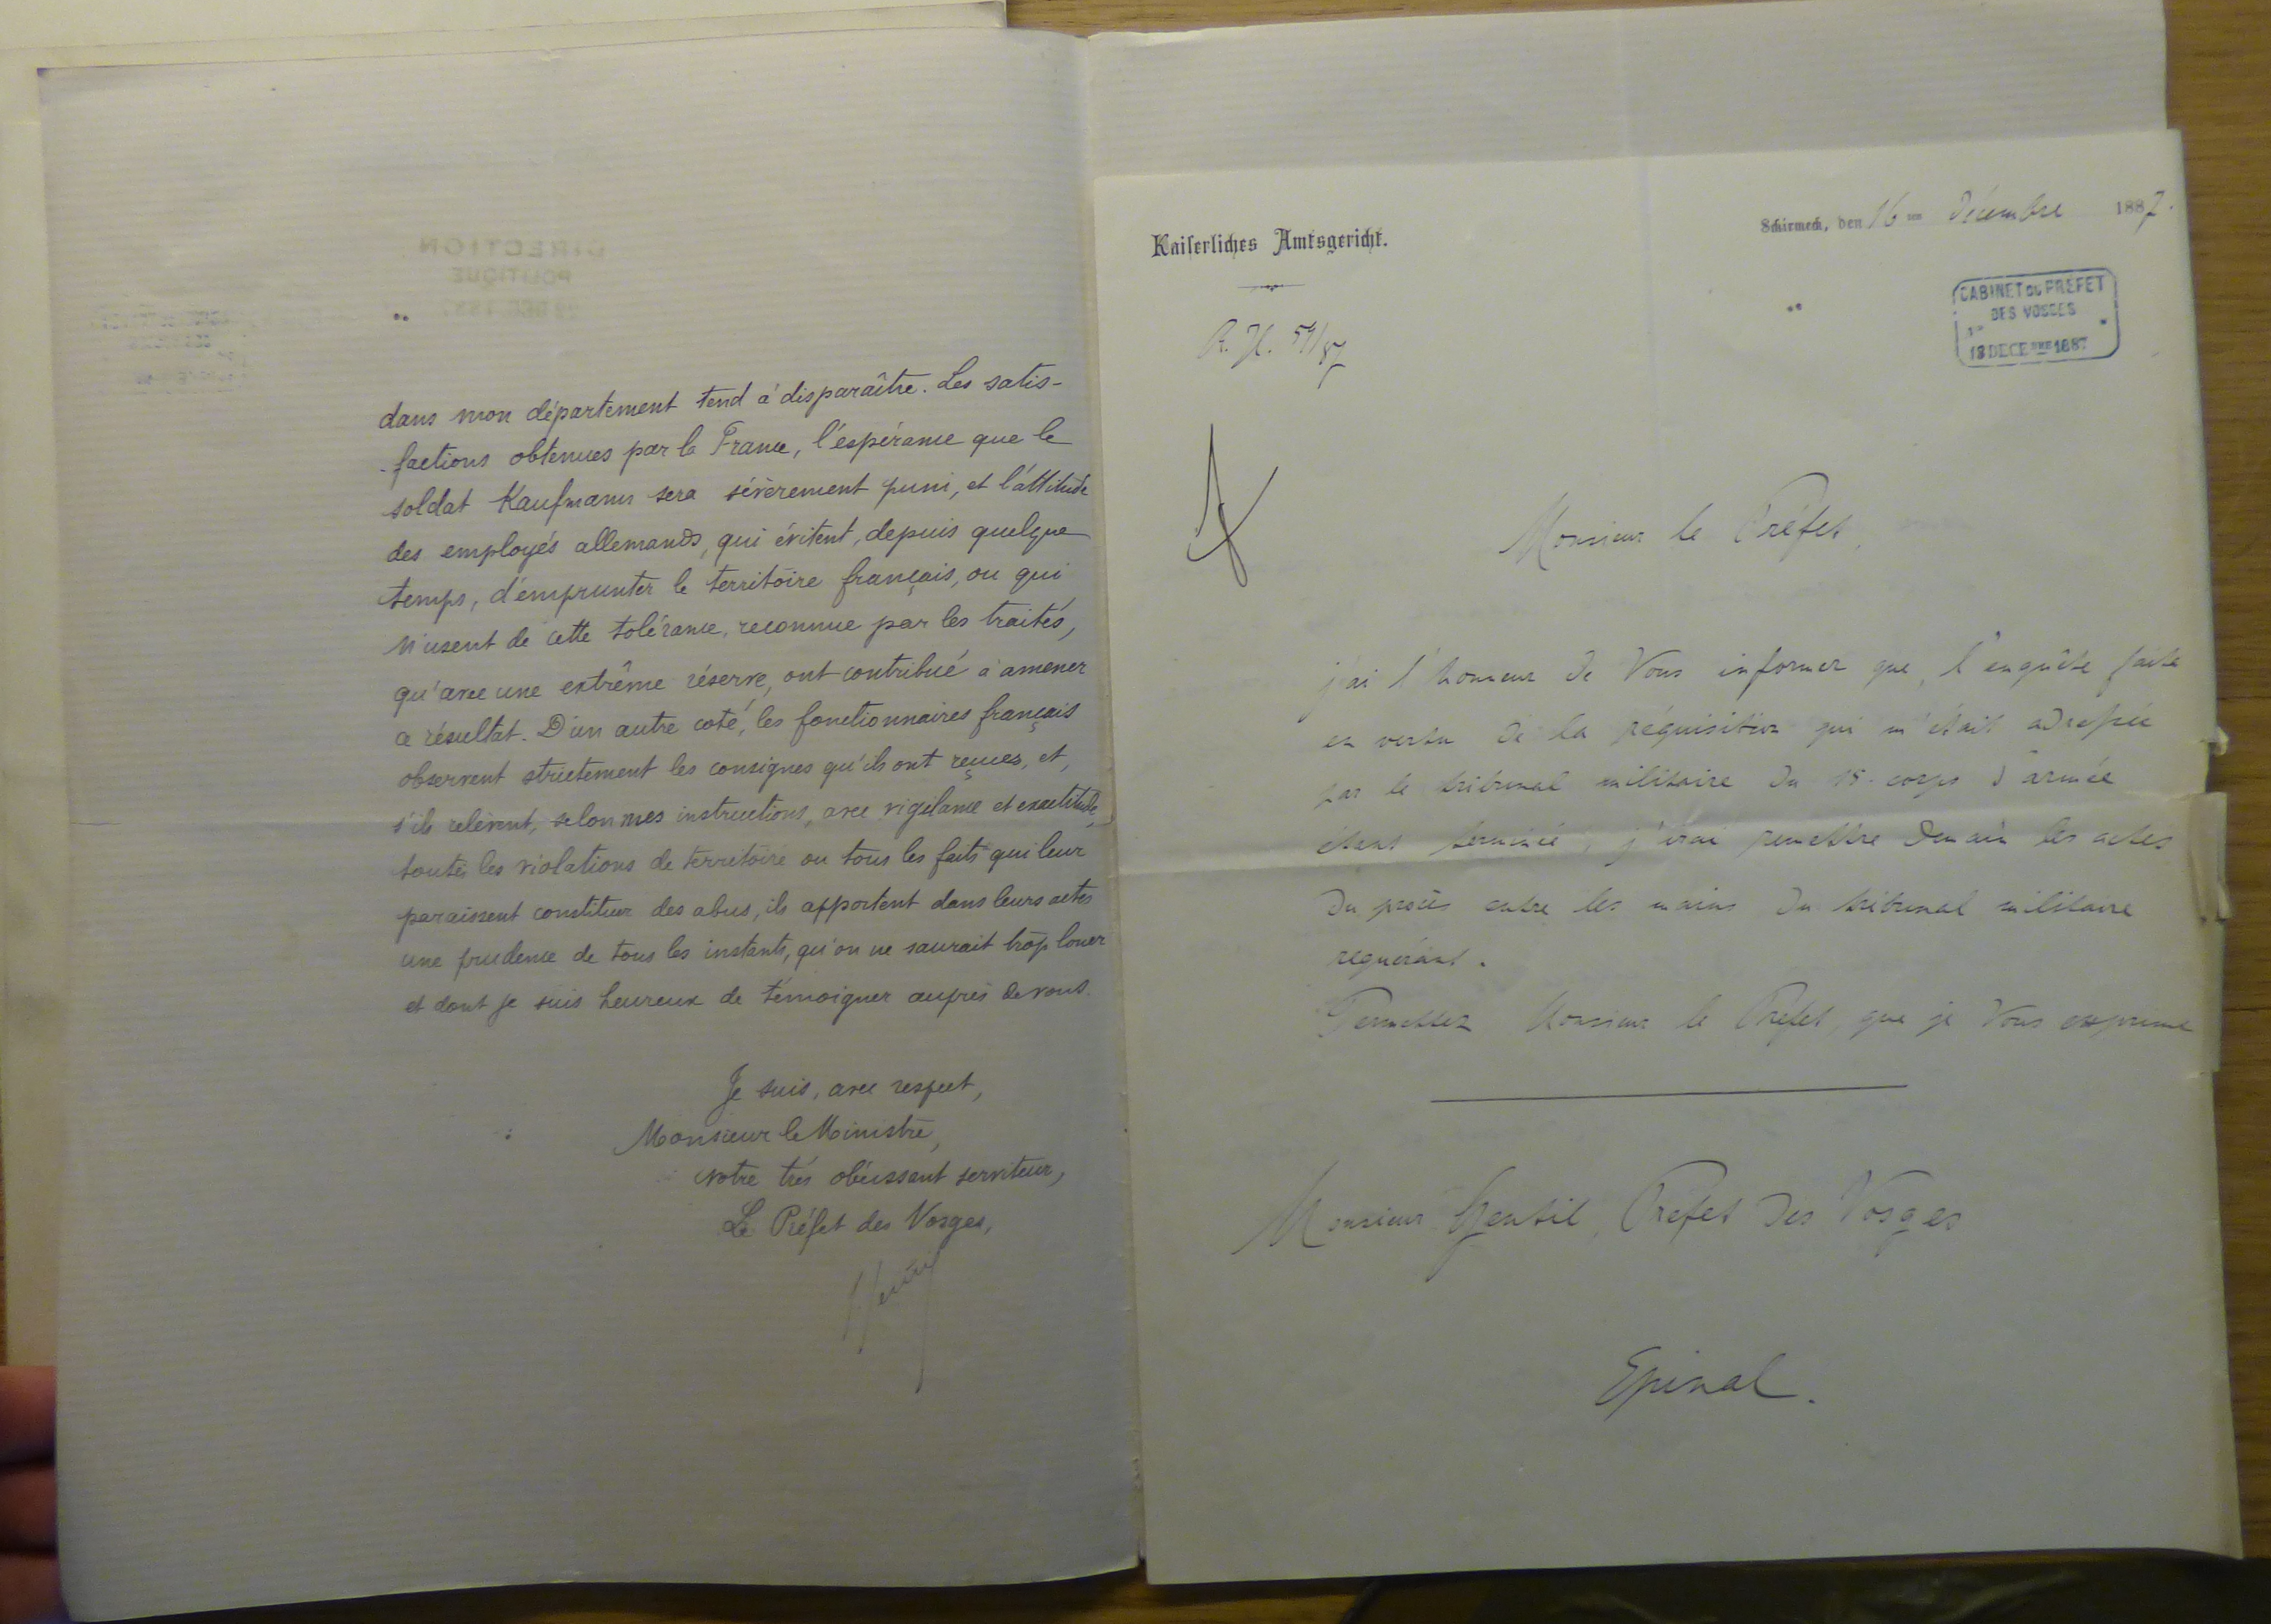 dans mon département tend à disparaître. Les satis-
-factions obtenues par la France, l'espérance que le
soldat Kaufmann sera sévèrement puni, et l'attitude
des employés allemands, qui évitent, depuis quelque
temps, d'emprunter le territoire français, ou qui
n'usent de cette tolérance, reconnue par les traités,
qu'avec une extrême réserve, ont contribué à amener
ce résultat. D'un autre coté, les fonctionnaires français
observent strictement les consignes qu'ils ont reçues, et,
s'ils relèvent, selon mes instructions, avec vigilance et exactitude,
toutes les violations de territoire ou tous les faits qui leur
paraissent constituer des abus, ils apportent dans leurs actes
une prudence de tous les instants, qu'on ne saurait trop louer
et dont je suis heureux de témoigner auprès de vous.
Je suis, avec respect,
Monsieur le Ministre,
votre très obéissant serviteur,
Le Préfet des Vosges,
DIRECTION
POLITIQUE
Kaiserliches Amtsgericht.
Schirmeck, den 16 ten Décembre 1887.
CABINET DU PREFET
DES VOSGES
18 DECEMBRE 1887
R. H. 59/87
Monsieur le Préfet,
j'ai l'honneur de Vous informer que, l'enquête faite
en vertu de la réquisition qui m'était adressée
par le tribunal militaire du 15. corps d'armée
étant terminée, j'irai remettre demain les actes
du procès entre les mains du tribunal militaire
requérant.
Permettez Monsieur le Préfet, que je Vous exprime
Monsieur Gentil, Préfet des Vosges
Epinal.